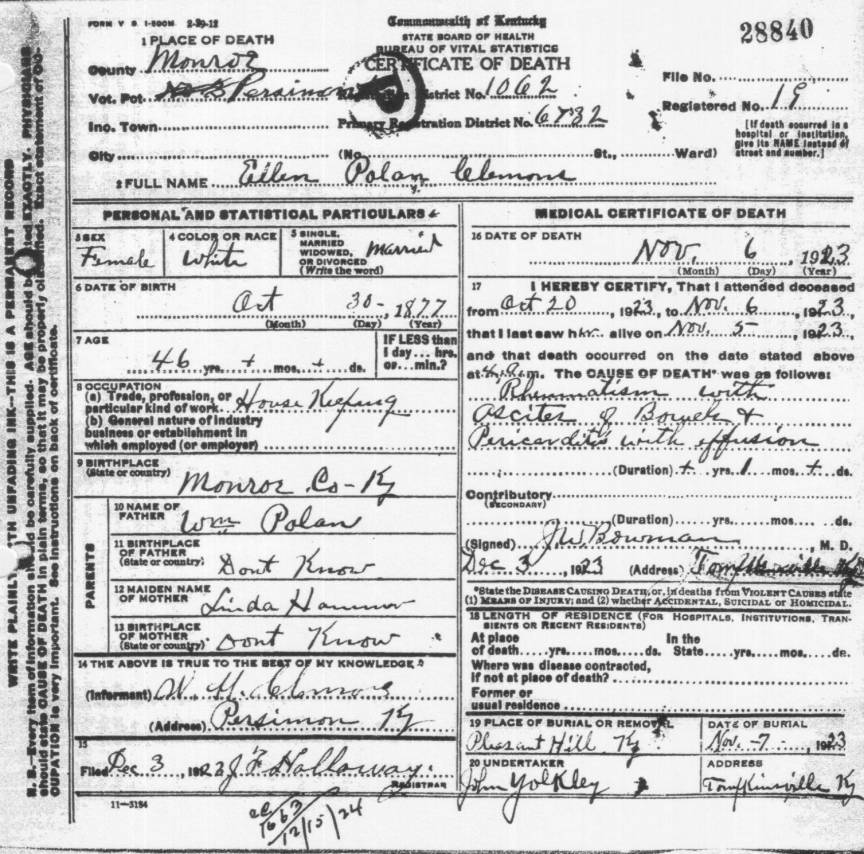 FORM V S. 1-500M 2-29-12
Commonwealth of Kentucky
STATE BOARD OF HEALTH
BUREAU OF VITAL STATISTICS
CERTIFICATE OF DEATH
28840
1 PLACE OF DEATH
County Monroe
Vot. Pct. Persimon
Registration District No. 1062
File No.
Inc. Town
Primary Registration District No. 6782
Registered No. 19
City (No. St., Ward)
[If death occurred in a
hospital or institution,
give its NAME instead of
street and number.]
2 FULL NAME Ellen Polan Clemons
PERSONAL AND STATISTICAL PARTICULARS
3 SEX
Female
4 COLOR OR RACE
White
5 SINGLE,
MARRIED
WIDOWED,
OR DIVORCED
(Write the word)
Married
6 DATE OF BIRTH
Oct 30-, 1877
(Month) (Day) (Year)
7 AGE
46 yrs. + mos. + ds.
IF LESS than
1 day... hrs.
or... min.?
8 OCCUPATION
(a) Trade, profession, or
particular kind of work House Keeping
(b) General nature of industry
business or establishment in
which employed (or employer)
9 BIRTHPLACE
(State or country)
Monroe Co-Ky
PARENTS
10 NAME OF
FATHER
Wm Polan
11 BIRTHPLACE
OF FATHER
(State or country)
Dont Know
12 MAIDEN NAME
OF MOTHER
Linda
13 BIRTHPLACE
OF MOTHER
(State or country)
Dont Know
14 THE ABOVE IS TRUE TO THE BEST OF MY KNOWLEDGE
(Informant) W. H. Clemons
(Address) Persimon Ky
15
Filed Dec 3, 1923 J F Holloway
REGISTRAR
11—3184
1663
12/15/24
MEDICAL CERTIFICATE OF DEATH
16 DATE OF DEATH
Nov. 6, 1923
(Month) (Day) (Year)
17 I HEREBY CERTIFY, That I attended deceased
from Oct 20, 1923, to Nov. 6, 1923,
that I last saw her alive on Nov. 5, 1923,
and that death occurred on the date stated above
at m. The CAUSE OF DEATH* was as follows:
Rheumatism with
Ascites of Bowels &
Pericarditis with effusion
(Duration) + yrs. 1 mos. + ds.
Contributory
(SECONDARY)
(Duration) yrs. mos. ds.
(Signed) J.W. Bowman, M. D.
Dec 3, 1923 (Address) Tompkinsville Ky
*State the DISEASE CAUSING DEATH, or, in deaths from VIOLENT CAUSES state
(1) MEANS OF INJURY; and (2) whether ACCIDENTAL, SUICIDAL OR HOMICIDAL.
18 LENGTH OF RESIDENCE (FOR HOSPITALS, INSTITUTIONS, TRAN-
SIENTS OR RECENT RESIDENTS)
At place
of death yrs. mos. ds.
In the
State yrs. mos. ds.
Where was disease contracted,
if not at place of death?
Former or
usual residence
19 PLACE OF BURIAL OR REMOVAL
Pleasant Hill Ky
DATE OF BURIAL
Nov. -7-, 1923
20 UNDERTAKER
John Yolkley
ADDRESS
Tompkinsville Ky
WRITE PLAINLY WITH UNFADING INK—THIS IS A PERMANENT RECORD
N. B.—Every item of information should be carefully supplied. AGE should be stated EXACTLY. PHYSICIANS
should state CAUSE OF DEATH in plain terms, so that it may be properly classified. Exact statement of OC-
CUPATION is very important. See instructions on back of certificate.